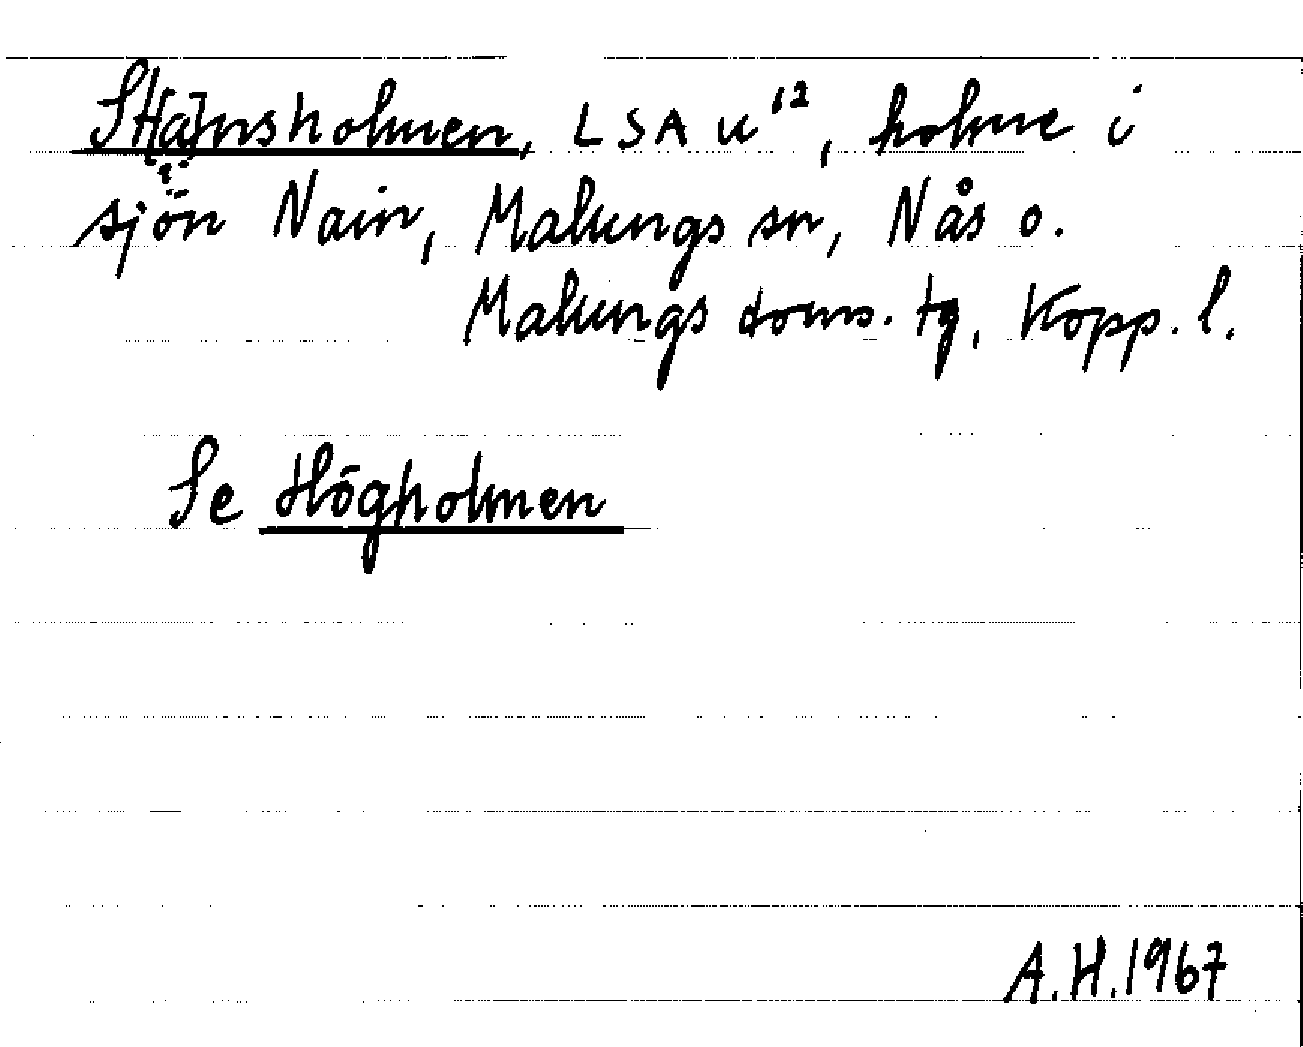 St[ä]nsholmen, LSA U¹², holme i
sjön Nain, Malungs sn, Nås o.
Malungs doms. tg, Kopp. l.
Se Högholmen
A.H.1967